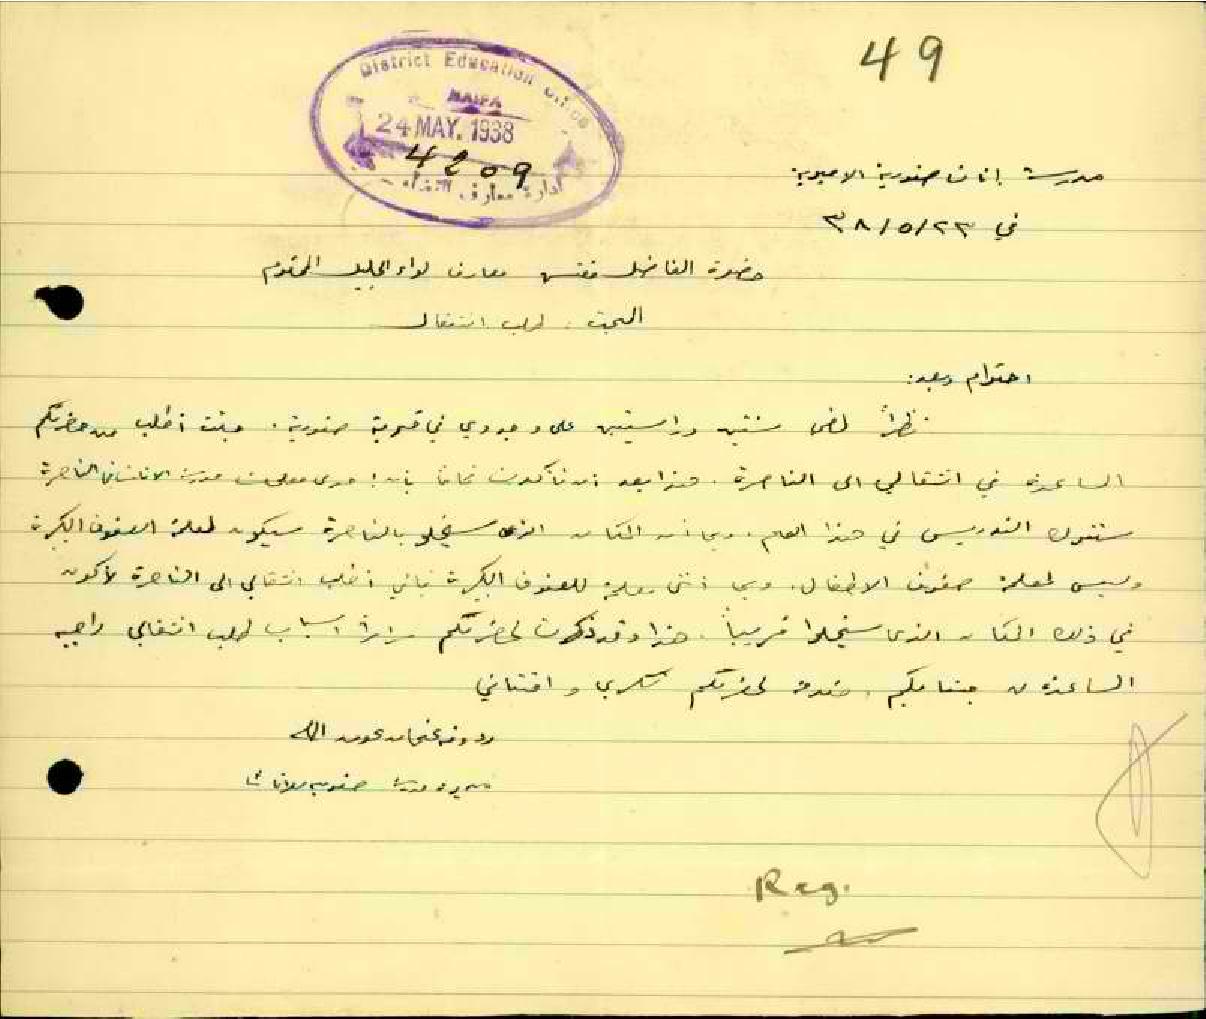 49
District Education Office
HAIFA
24 MAY. 1938
4209
ادارة معارف القضاء
مدرسة إناث صفورية الاميرية
في ٢٣/٥/٣٨
حضرة الفاضل مفتش معارف لواء الجليل المحترم
البحث: طلب انتقال
احترام وبعد:
نظراً لمضي سنتين دراسيتين على وجودي في قرية صفورية. جئت أطلب من حضرتكم
المساعدة في انتقالي الى الناصرة. هذا بعد أن تأكدت تماما بان إحدى معلمات مدرسة الاناث في الناصرة
ستترك التدريس في هذا العام. وبما أن المكان الذي سيخلو بالناصرة سيكون لمعلمة الصفوف الكبيرة
وليس لمعلمة صفوف الاطفال. وبما أنني معلمة للصفوف الكبيرة فإني أطلب انتقالي الى الناصرة لأكون
في ذلك المكان الذي سيخلوا قريباً. هذا وقد ذكرت لحضرتكم مراراً اسباب طلب انتقالي راجية
المساعدة من جنابكم. مقدمة لحضرتكم شكري و امتناني
عون الله
مديرة مدرسة صفورية للاناث
Reg.